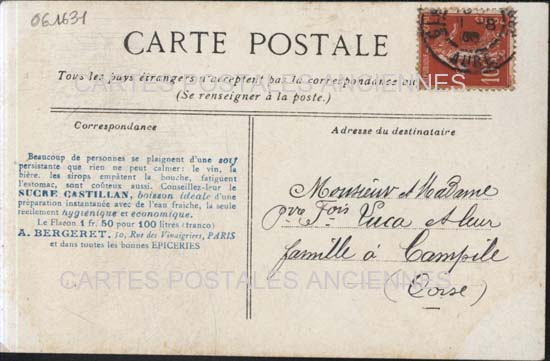 061631
CARTE POSTALE
Tous les pays étrangers n'acceptent pas la correspondance au
(Se renseigner à la poste.)
CARTES POSTALES ANCIENNES
Correspondance
Adresse du destinataire
Beaucoup de personnes se plaignent d'une soif
persistante que rien ne peut calmer: le vin, la
bière, les sirops empâtent la bouche, fatiguent
l'estomac, sont coûteux aussi. Conseillez-leur le
SUCRE CASTILLAN, boisson idéale d'une
préparation instantanée avec de l'eau fraîche, la seule
réellement hygiénique et économique.
Le Flacon 1 fr. 50 pour 100 litres (franco)
A. BERGERET, 50, Rue des Vinaigriers, PARIS
et dans toutes les bonnes EPICERIES
Monsieur et Madame
Fois Luca et leur
famille à Campile
(Corse)
CARTES POSTALES ANCIENNES
10